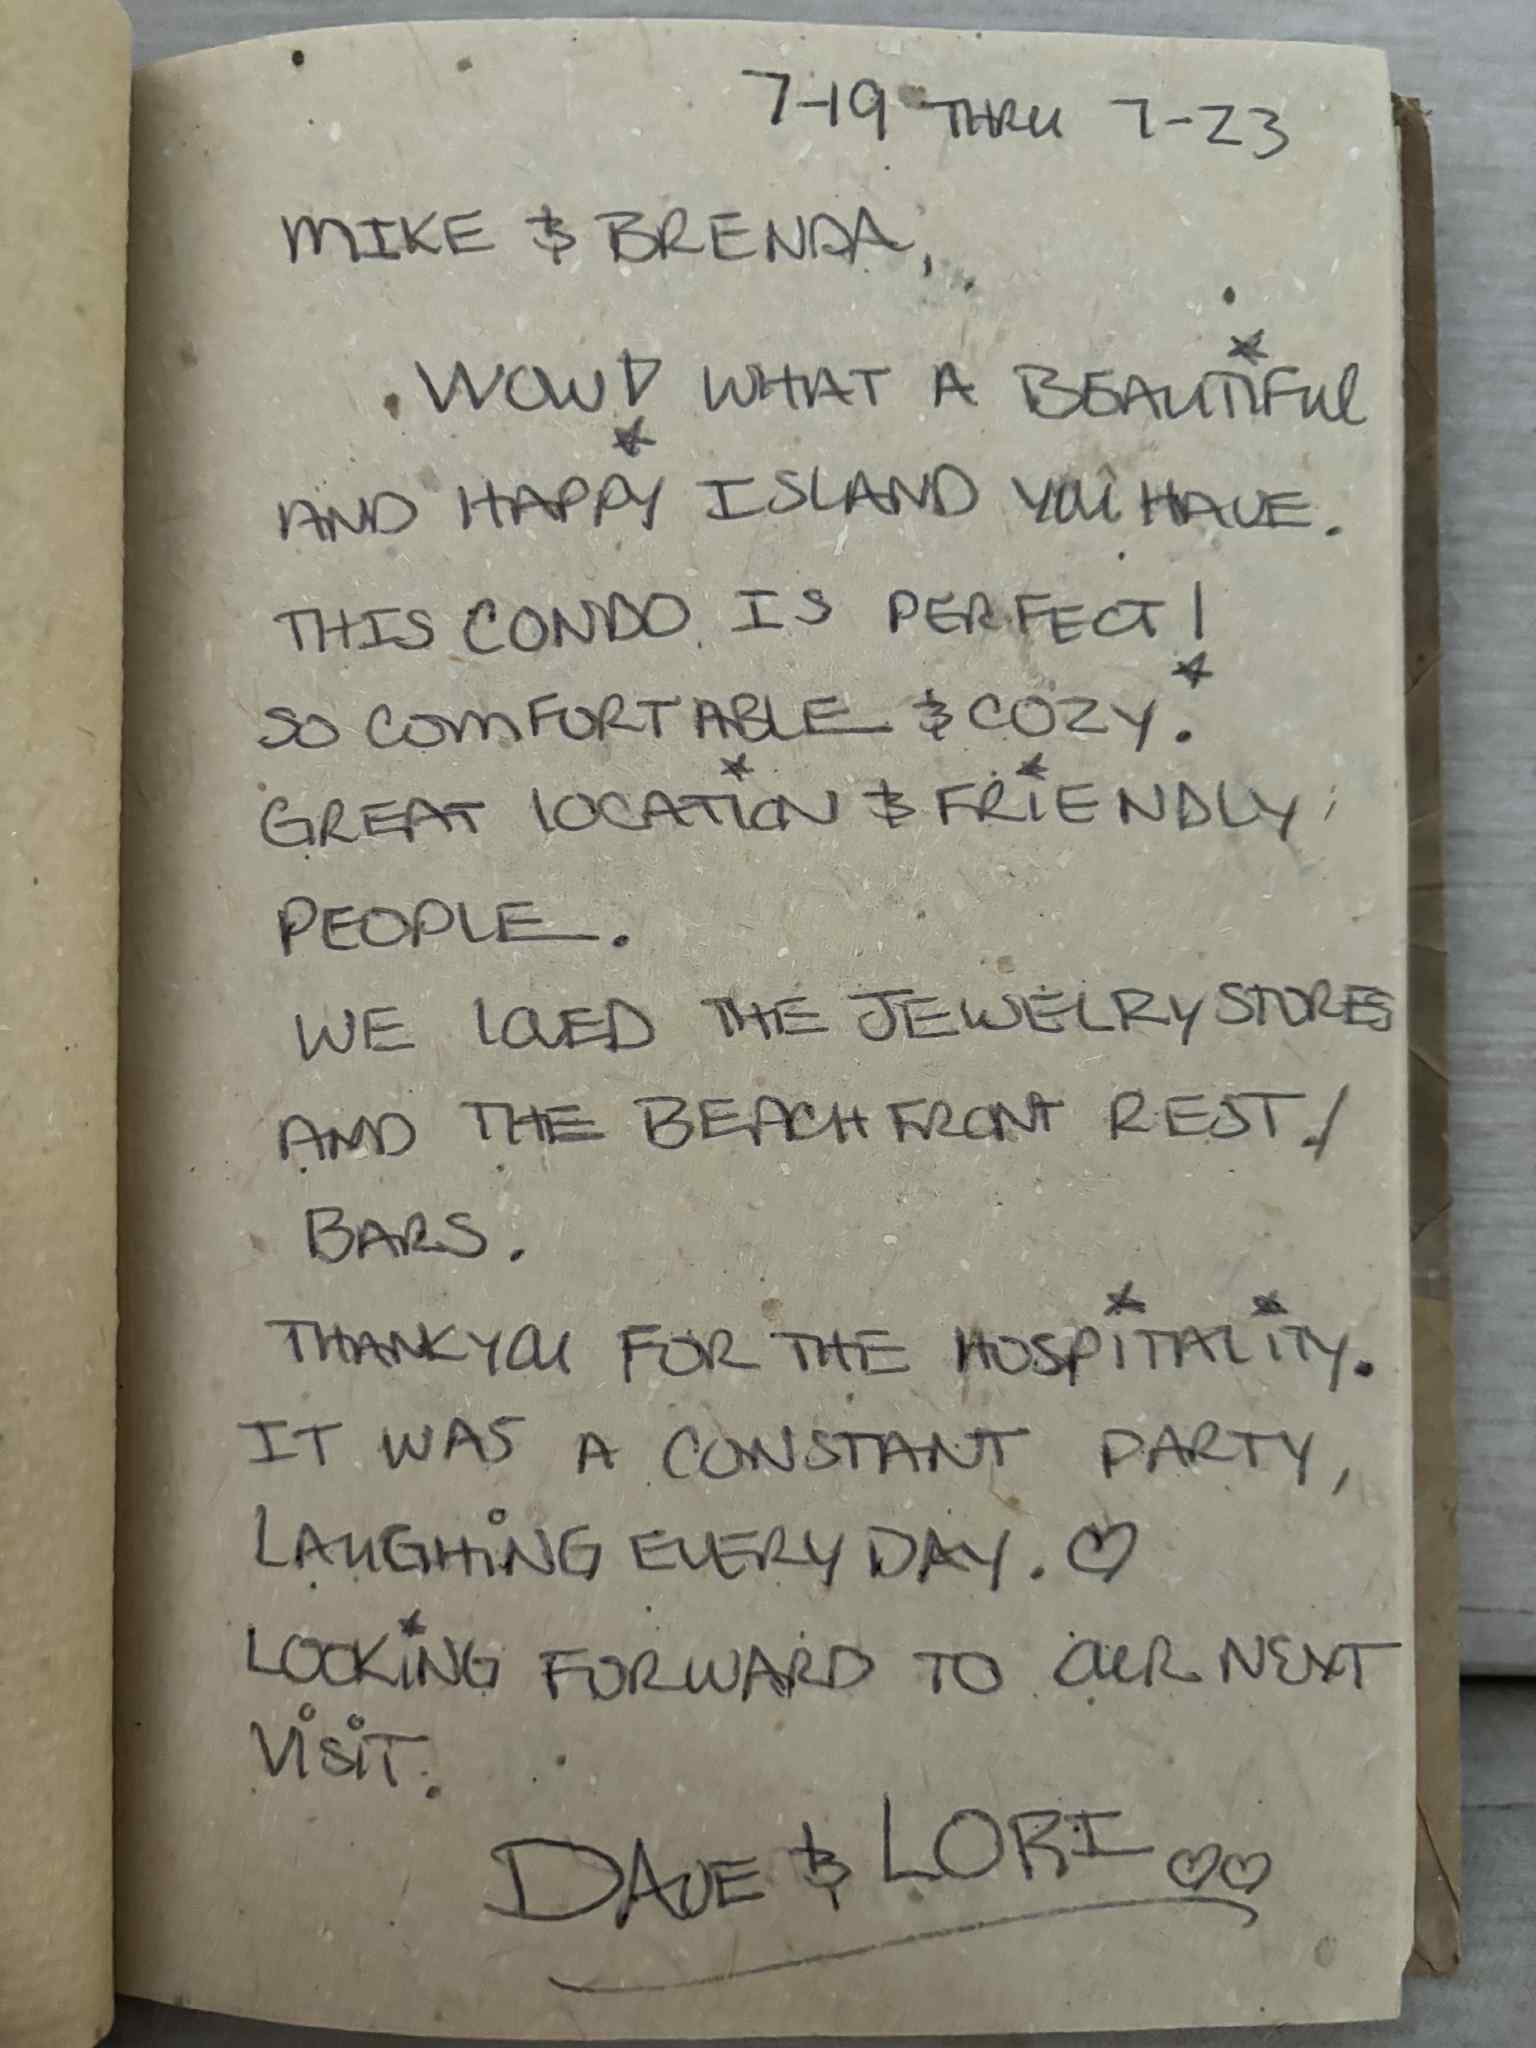 7-19 THRU 7-23
MIKE & BRENDA,
WOW! WHAT A BEAUTIFUL
AND HAPPY ISLAND YOU HAVE.
THIS CONDO IS PERFECT!
SO COMFORTABLE & COZY.
GREAT LOCATION & FRIENDLY
PEOPLE.
WE LOVED THE JEWELRY STORES
AND THE BEACH FRONT REST./
BARS.
THANK YOU FOR THE HOSPITALITY.
IT WAS A CONSTANT PARTY,
LAUGHING EVERY DAY. ♡
LOOKING FORWARD TO OUR NEXT
VISIT.
DAVE & LORI ♡♡